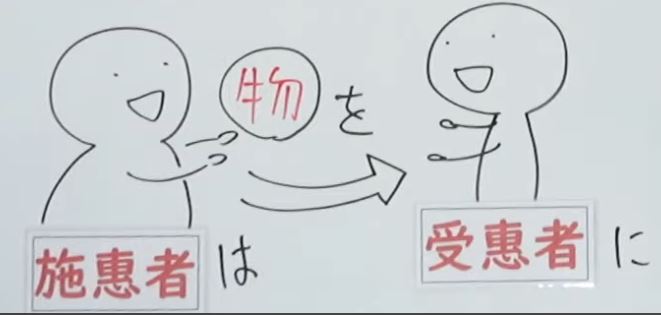 物を
施恵者は
受恵者に